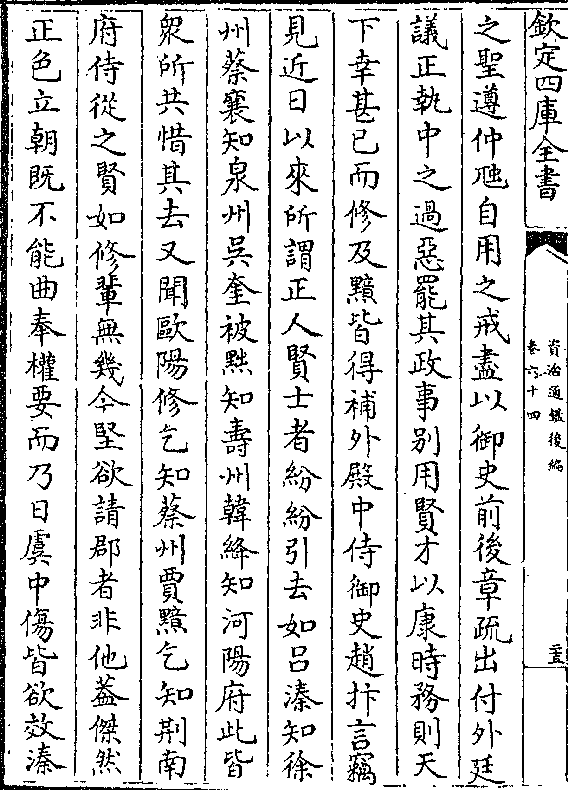 欽定四庫全書
資治通鑑後編
卷六十四
之聖遵仲虺自用之戒盡以御史前後章疏出付外廷
議正執中之過惡罷其政事別用賢才以康時務則天
下幸甚已而修及黯皆得補外殿中侍御史趙抃言竊
見近日以來所謂正人賢士者紛紛引去如呂溱知徐
州蔡襄知泉州吳奎被黜知壽州韓絳知河陽府此皆
衆所共惜其去又聞歐陽修乞知蔡州賈黯乞知荆南
府侍從之賢如修輩無幾今堅欲請郡者非他葢傑然
正色立朝既不能曲奉權要而乃日虞中傷皆欲效溱